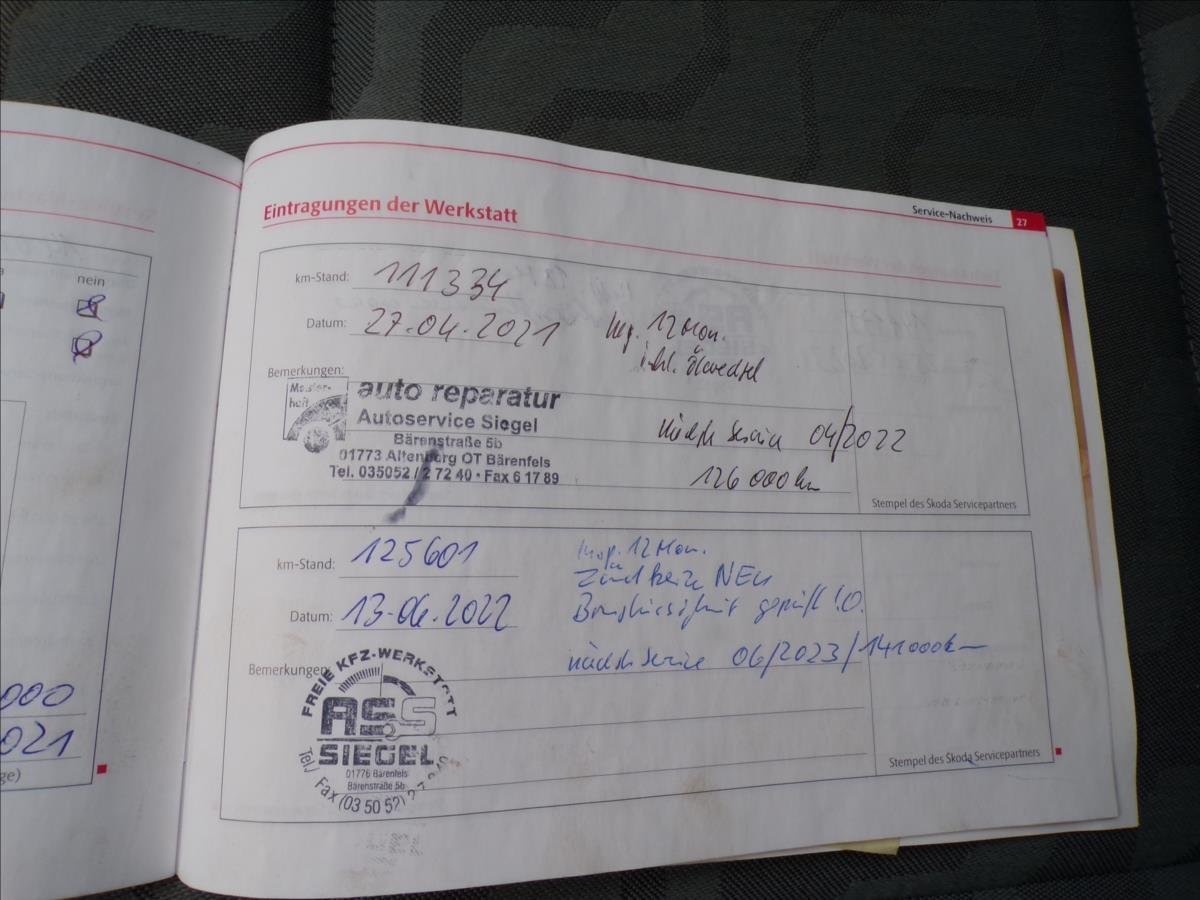 nein
000
021
ge)
Service-Nachweis 27
Eintragungen der Werkstatt
km-Stand: 111334
Datum: 27.04.2021
Insp. 12 Mon.
inkl. Ölwechsel
Bemerkungen:
Meister-
haft
auto reparatur
Autoservice Siegel
Bärenstraße 5b
01773 Altenberg OT Bärenfels
Tel. 035052 / 2 72 40 • Fax 6 17 89
nächste Service 04/2022
126 000 km
Stempel des Škoda Servicepartners
km-Stand: 125601
Insp. 12 Mon.
Zündkerze NEU
Datum: 13.06.2022
geprüft i.O.
nächste Service 06/2023 / 141000km
Bemerkungen:
FREIE KFZ-WERKSTATT
SIEGEL
01776 Bärenfels
Bärenstraße 5b
Tel./ Fax (03 50 52)
Stempel des Škoda Servicepartners